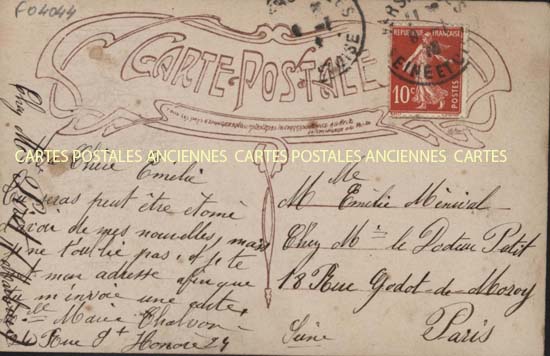 F04044
CARTE-POSTALE
RÉPUBLIQUE FRANÇAISE
10c POSTES
SEINE ET OISE
CARTES POSTALES ANCIENNES CARTES POSTALES ANCIENNES CARTES
Chère Emilie
seras peut être étonné
avoir de mes nouvelles, mais
ne t'oublie pas, et je te
mon adresse afin que
m'envoie une carte.
Marie Chalvon
Rue St Honoré 24
Mlle Emilie Ménival
Chez Mr le Docteur Petit
18 Rue Godot-de-Moroy
Paris
Seine